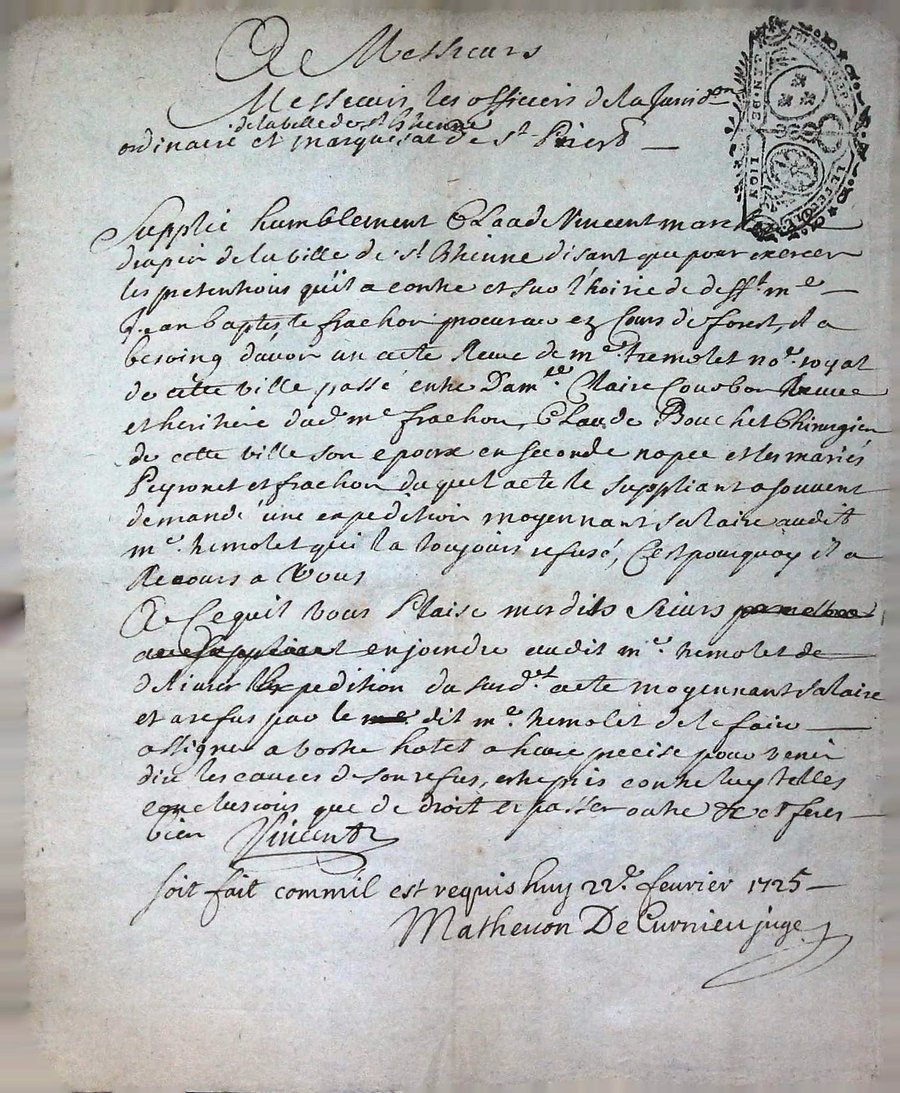 A Messieurs
Messieurs les officiers de la Jurid.on
de la ville de st Etienne
ordinaire et marquisat de st Priest
Supplie humblement Claude Vincent march
drapier de la ville de st Etienne disant que pour exercer
les pretentions qu'il a contre et sur l'hoirie de deff.t m.e
Jean baptiste frachon procureur ez Cours de forest, il a
besoing d'avoir un acte Receu de m.e tremolet no.re royal
de cette ville passé entre Dam.lle Claire Courbon Veuve
et heritiere dud m.e frachon, Claude Bouchet Chirurgien
de cette ville son epoux en seconde nopce et les mariés
Peyronet et frachon duquel acte le suppliant a souvent
demandé une expedition moyennant salaire audit
m.e tremolet qui l'a toujours refusé, C'est pourquoy il a
Recours a Vous
A Ce quil Vous Plaise mesdits Sieurs
au suppliant enjoindre audit m.e tremolet de
delivrer expedition du susd.t acte moyennant salaire
et a refus par le dit m.e tremolet de le faire
assigner a vostre hotel a heure precise pour venir
dire les causes de son refus, estre pris contre luy telles
conclusions que de droit et passer outre et feres
bien Vincent
soit fait comm'il est requis huy 22.e fevrier 1725
Mathevon De Curnieu juge
GENNE DE LION